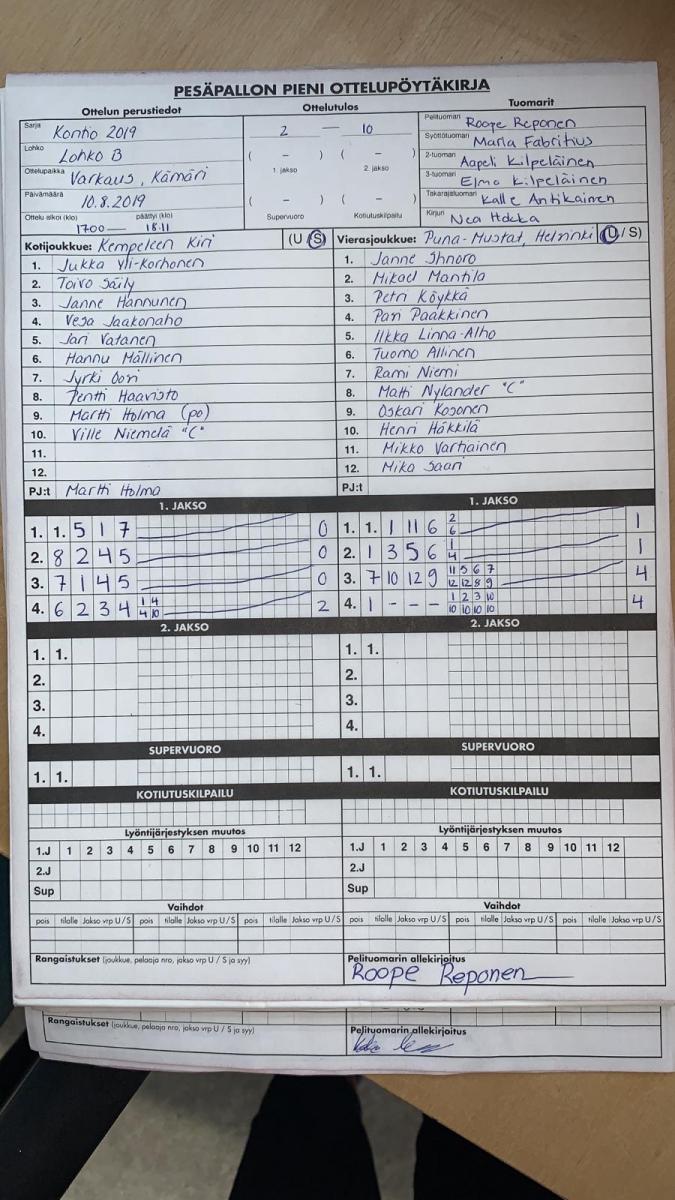 PESÄPALLON PIENI OTTELUPÖYTÄKIRJA
Ottelun perustiedot Ottelutulos Tuomarit
Sarja Kontio 2019
Lohko Lohko B
Ottelupaikka Varkaus, Kämäri
Päivämäärä 10.8.2019
Ottelu alkoi (klo) päättyi (klo)
1700 — 18.11
2 — 10
( – ) ( – )
1. jakso 2. jakso
( – ) ( – )
Supervuoro Kotiutuskilpailu
Pelituomari Roope Reponen
Syöttötuomari Marla Fabritius
2-tuomari Aapeli Kilpeläinen
3-tuomari Elmo Kilpeläinen
Takarajatuomari Kalle Antikainen
Kirjuri Nea Hokka
Kotijoukkue: Kempeleen Kiri (U / S)
1. Jukka Yli-Korhonen
2. Toivo Säily
3. Janne Hannunen
4. Vesa Jaakonaho
5. Jari Vatanen
6. Hannu Mällinen
7. Jyrki Oori
8. Pentti Haavisto
9. Martti Holma (po)
10. Ville Niemelä "C"
11.
12.
PJ:t Martti Holma
Vierasjoukkue: Puna-Mustat, Helsinki (U / S)
1. Janne Ihnoro
2. Mikael Mantila
3. Petri Köykkä
4. Pari Paakkinen
5. Ilkka Linna-Alho
6. Tuomo Allinen
7. Rami Niemi
8. Matti Nylander "C"
9. Oskari Kosonen
10. Henri Häkkilä
11. Mikko Vartiainen
12. Mika Saari
PJ:t
1. JAKSO
1. 1. 5 1 7 0
2. 8 2 4 5 0
3. 7 1 4 5 0
4. 6 2 3 4 1 4 2
4 10
1. JAKSO
1. 1. 1 11 6 2 1
6
2. 1 3 5 6 1 1
4
3. 7 10 12 9 11 5 6 7 4
12 12 8 9
4. 1 - - - 1 2 3 10 4
10 10 10 10
2. JAKSO
1. 1.
2.
3.
4.
2. JAKSO
1. 1.
2.
3.
4.
SUPERVUORO
1. 1.
SUPERVUORO
1. 1.
KOTIUTUSKILPAILU
KOTIUTUSKILPAILU
Lyöntijärjestyksen muutos
1.J 1 2 3 4 5 6 7 8 9 10 11 12
2.J
Sup
Lyöntijärjestyksen muutos
1.J 1 2 3 4 5 6 7 8 9 10 11 12
2.J
Sup
Vaihdot
pois tilalle Jakso vrp U/S pois tilalle Jakso vrp U/S pois tilalle Jakso vrp U/S
Vaihdot
pois tilalle Jakso vrp U/S pois tilalle Jakso vrp U/S pois tilalle Jakso vrp U/S
Rangaistukset (joukkue, pelaaja nro, jakso vrp U / S ja syy)
Pelituomarin allekirjoitus
Roope Reponen
Rangaistukset (joukkue, pelaaja nro, jakso vrp U / S ja syy)
Pelituomarin allekirjoitus